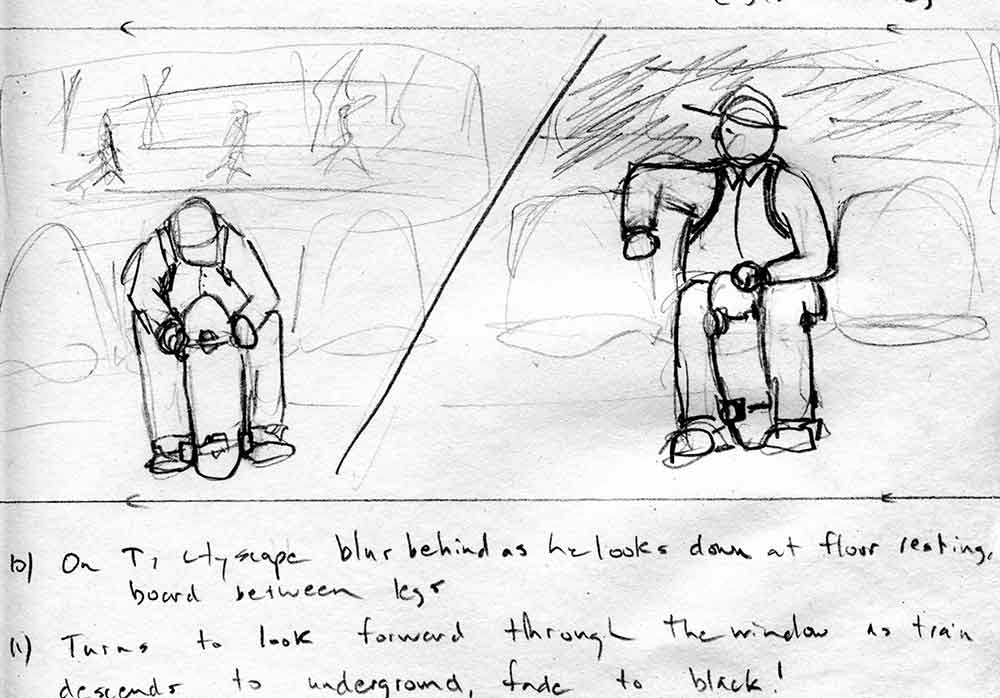 10) On T, cityscape blur behind as he looks down at floor resting,
board between legs
11) Turns to look forward through the window as train
descends to underground, fade to black!